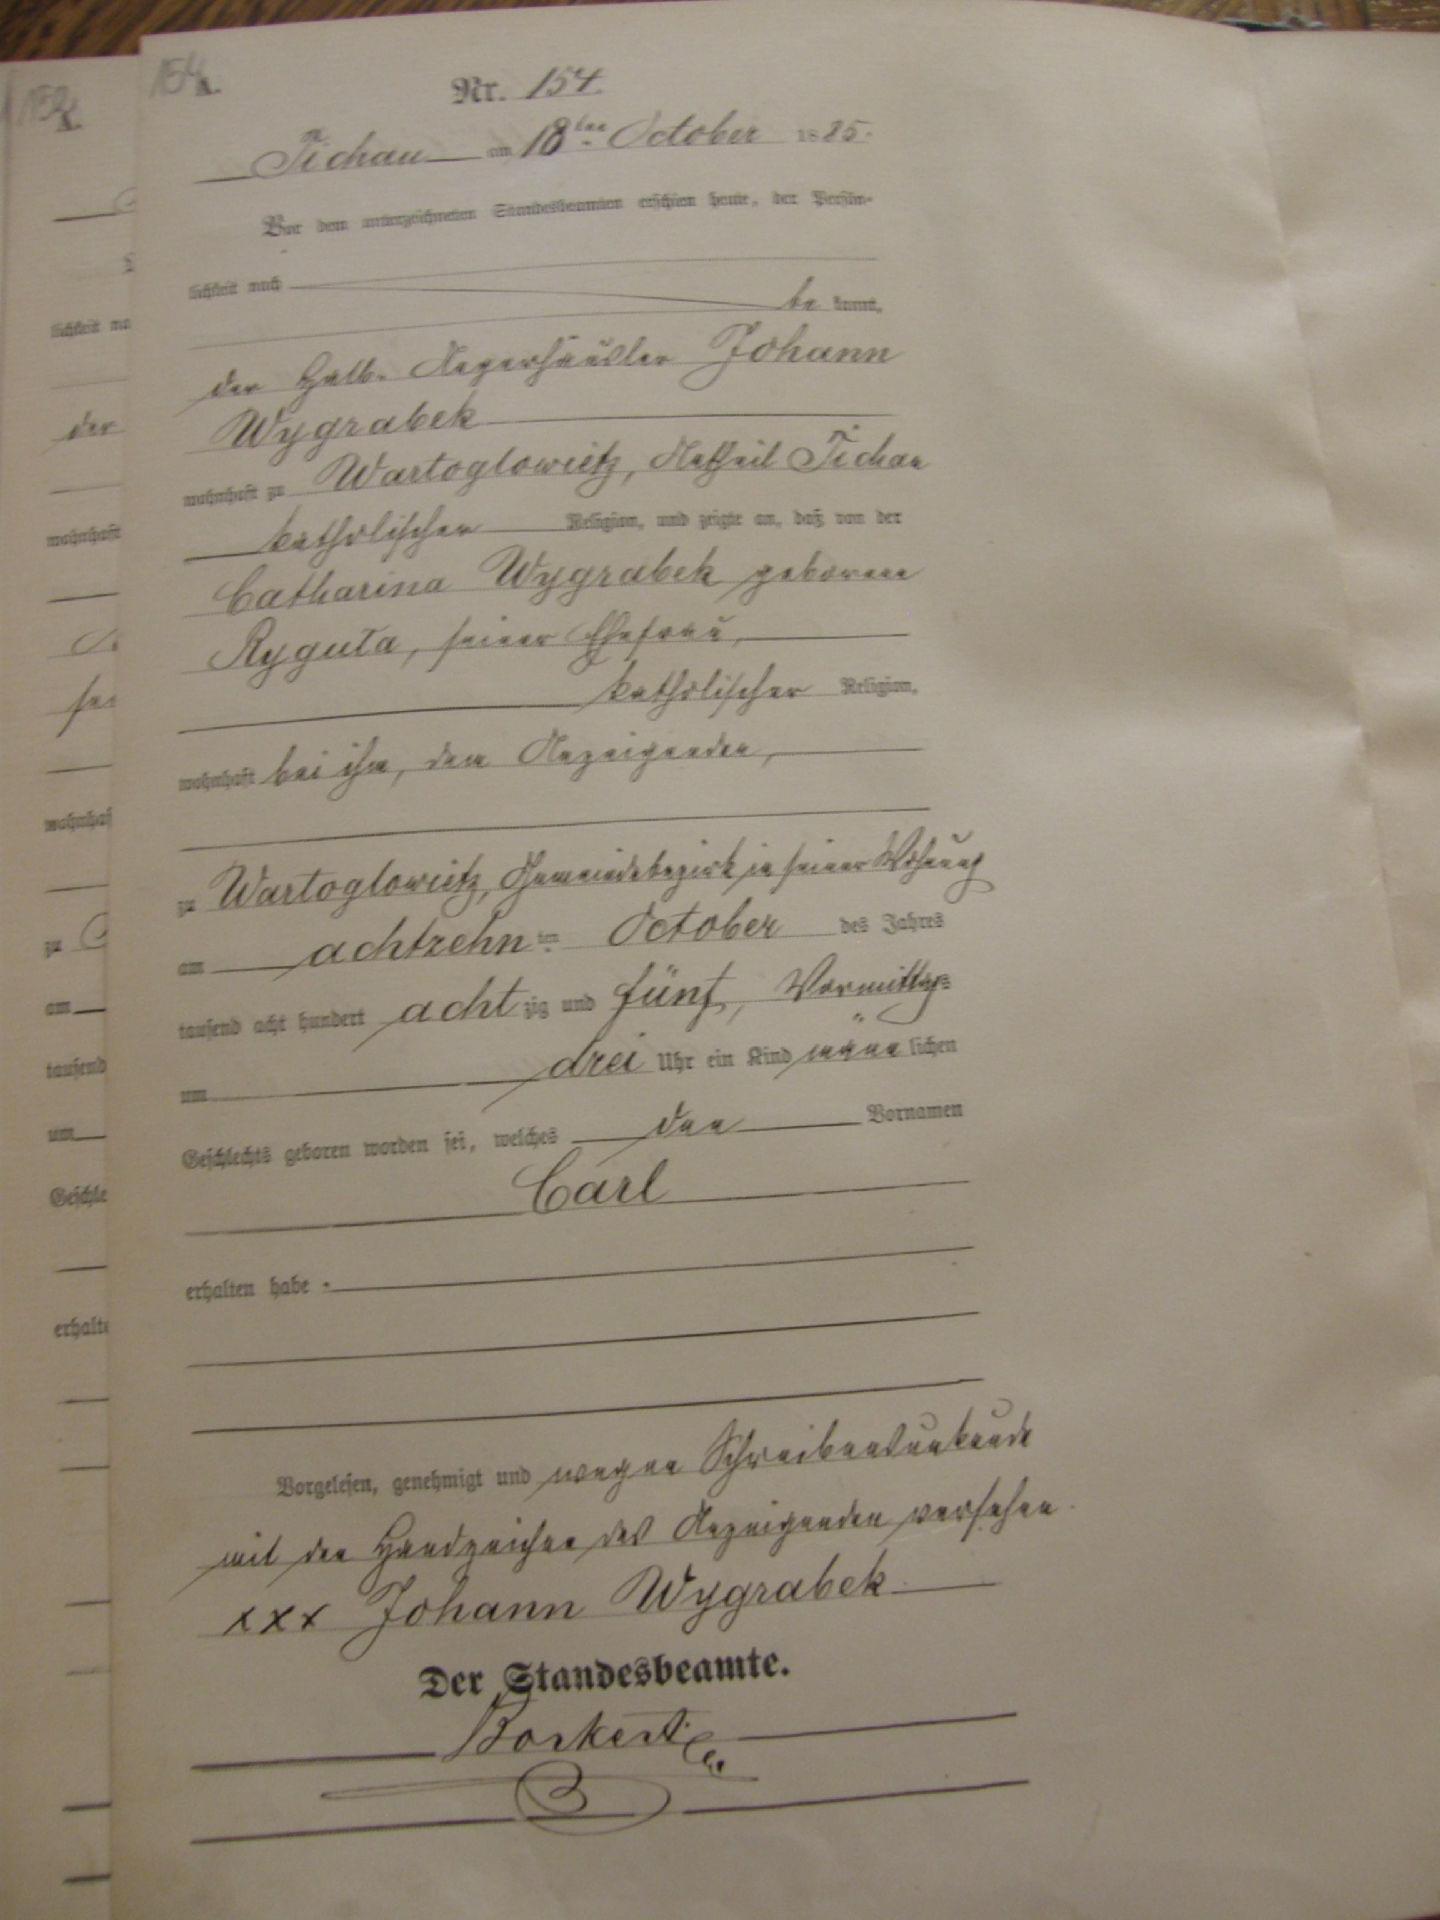 152
A.
154
A.
Nr. 154.
Tichau am 18ten October 1885.
Vor dem unterzeichneten Standesbeamten erschien heute, der Persön-
lichkeit nach
be kannt,
der Halb- Angerhäusler Johann
Wygrabek
wohnhaft zu Wartoglowietz, Antheil Tichau
katholischer Religion, und zeigte an, daß von der
Catharina Wygrabek geborene
Ryguła, seiner Ehefrau,
katholischer Religion,
wohnhaft bei ihm, dem Anzeigenden,
zu Wartoglowietz, Gemeindebezirk in seiner Wohnung
am achtzehn ten October des Jahres
tausend acht hundert acht zig und fünf, Vormittags
um drei Uhr ein Kind männ lichen
Geschlechts geboren worden sei, welches den Vornamen
Carl
erhalten habe
Vorgelesen, genehmigt und wegen Schreibensunkunde
mit den Handzeichen des Anzeigenden versehen.
xxx Johann Wygrabek
Der Standesbeamte.
Borkert